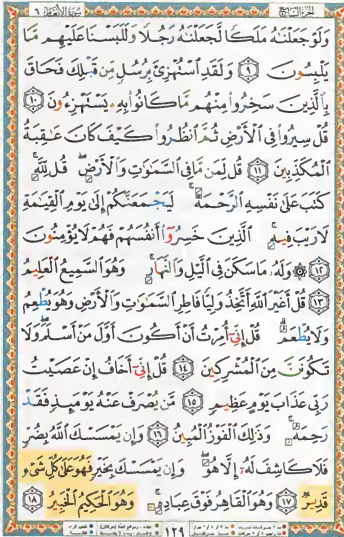 الجزء السابع
سورة الأنعام ٦
وَلَوْ جَعَلْنَٰهُ مَلَكًا لَّجَعَلْنَٰهُ رَجُلًا وَلَلَبَسْنَا عَلَيْهِم مَّا
يَلْبِسُونَ ٩ وَلَقَدِ ٱسْتُهْزِئَ بِرُسُلٍ مِّن قَبْلِكَ فَحَاقَ
بِٱلَّذِينَ سَخِرُوا۟ مِنْهُم مَّا كَانُوا۟ بِهِۦ يَسْتَهْزِءُونَ ١٠
قُلْ سِيرُوا۟ فِى ٱلْأَرْضِ ثُمَّ ٱنظُرُوا۟ كَيْفَ كَانَ عَٰقِبَةُ
ٱلْمُكَذِّبِينَ ١١ قُل لِّمَن مَّا فِى ٱلسَّمَٰوَٰتِ وَٱلْأَرْضِ ۖ قُل لِّلَّهِ ۚ
كَتَبَ عَلَىٰ نَفْسِهِ ٱلرَّحْمَةَ ۚ لَيَجْمَعَنَّكُمْ إِلَىٰ يَوْمِ ٱلْقِيَٰمَةِ
لَا رَيْبَ فِيهِ ۚ ٱلَّذِينَ خَسِرُوٓا۟ أَنفُسَهُمْ فَهُمْ لَا يُؤْمِنُونَ
١٢ ۞ وَلَهُۥ مَا سَكَنَ فِى ٱلَّيْلِ وَٱلنَّهَارِ ۚ وَهُوَ ٱلسَّمِيعُ ٱلْعَلِيمُ
١٣ قُلْ أَغَيْرَ ٱللَّهِ أَتَّخِذُ وَلِيًّا فَاطِرِ ٱلسَّمَٰوَٰتِ وَٱلْأَرْضِ وَهُوَ يُطْعِمُ
وَلَا يُطْعَمُ ۗ قُلْ إِنِّىٓ أُمِرْتُ أَنْ أَكُونَ أَوَّلَ مَنْ أَسْلَمَ ۖ وَلَا
تَكُونَنَّ مِنَ ٱلْمُشْرِكِينَ ١٤ قُلْ إِنِّىٓ أَخَافُ إِنْ عَصَيْتُ
رَبِّى عَذَابَ يَوْمٍ عَظِيمٍ ١٥ مَّن يُصْرَفْ عَنْهُ يَوْمَئِذٍ فَقَدْ
رَحِمَهُۥ ۚ وَذَٰلِكَ ٱلْفَوْزُ ٱلْمُبِينُ ١٦ وَإِن يَمْسَسْكَ ٱللَّهُ بِضُرٍّ
فَلَا كَاشِفَ لَهُۥٓ إِلَّا هُوَ ۖ وَإِن يَمْسَسْكَ بِخَيْرٍ فَهُوَ عَلَىٰ كُلِّ شَىْءٍ
قَدِيرٌ ١٧ وَهُوَ ٱلْقَاهِرُ فَوْقَ عِبَادِهِۦ ۚ وَهُوَ ٱلْحَكِيمُ ٱلْخَبِيرُ ١٨
١٢٩